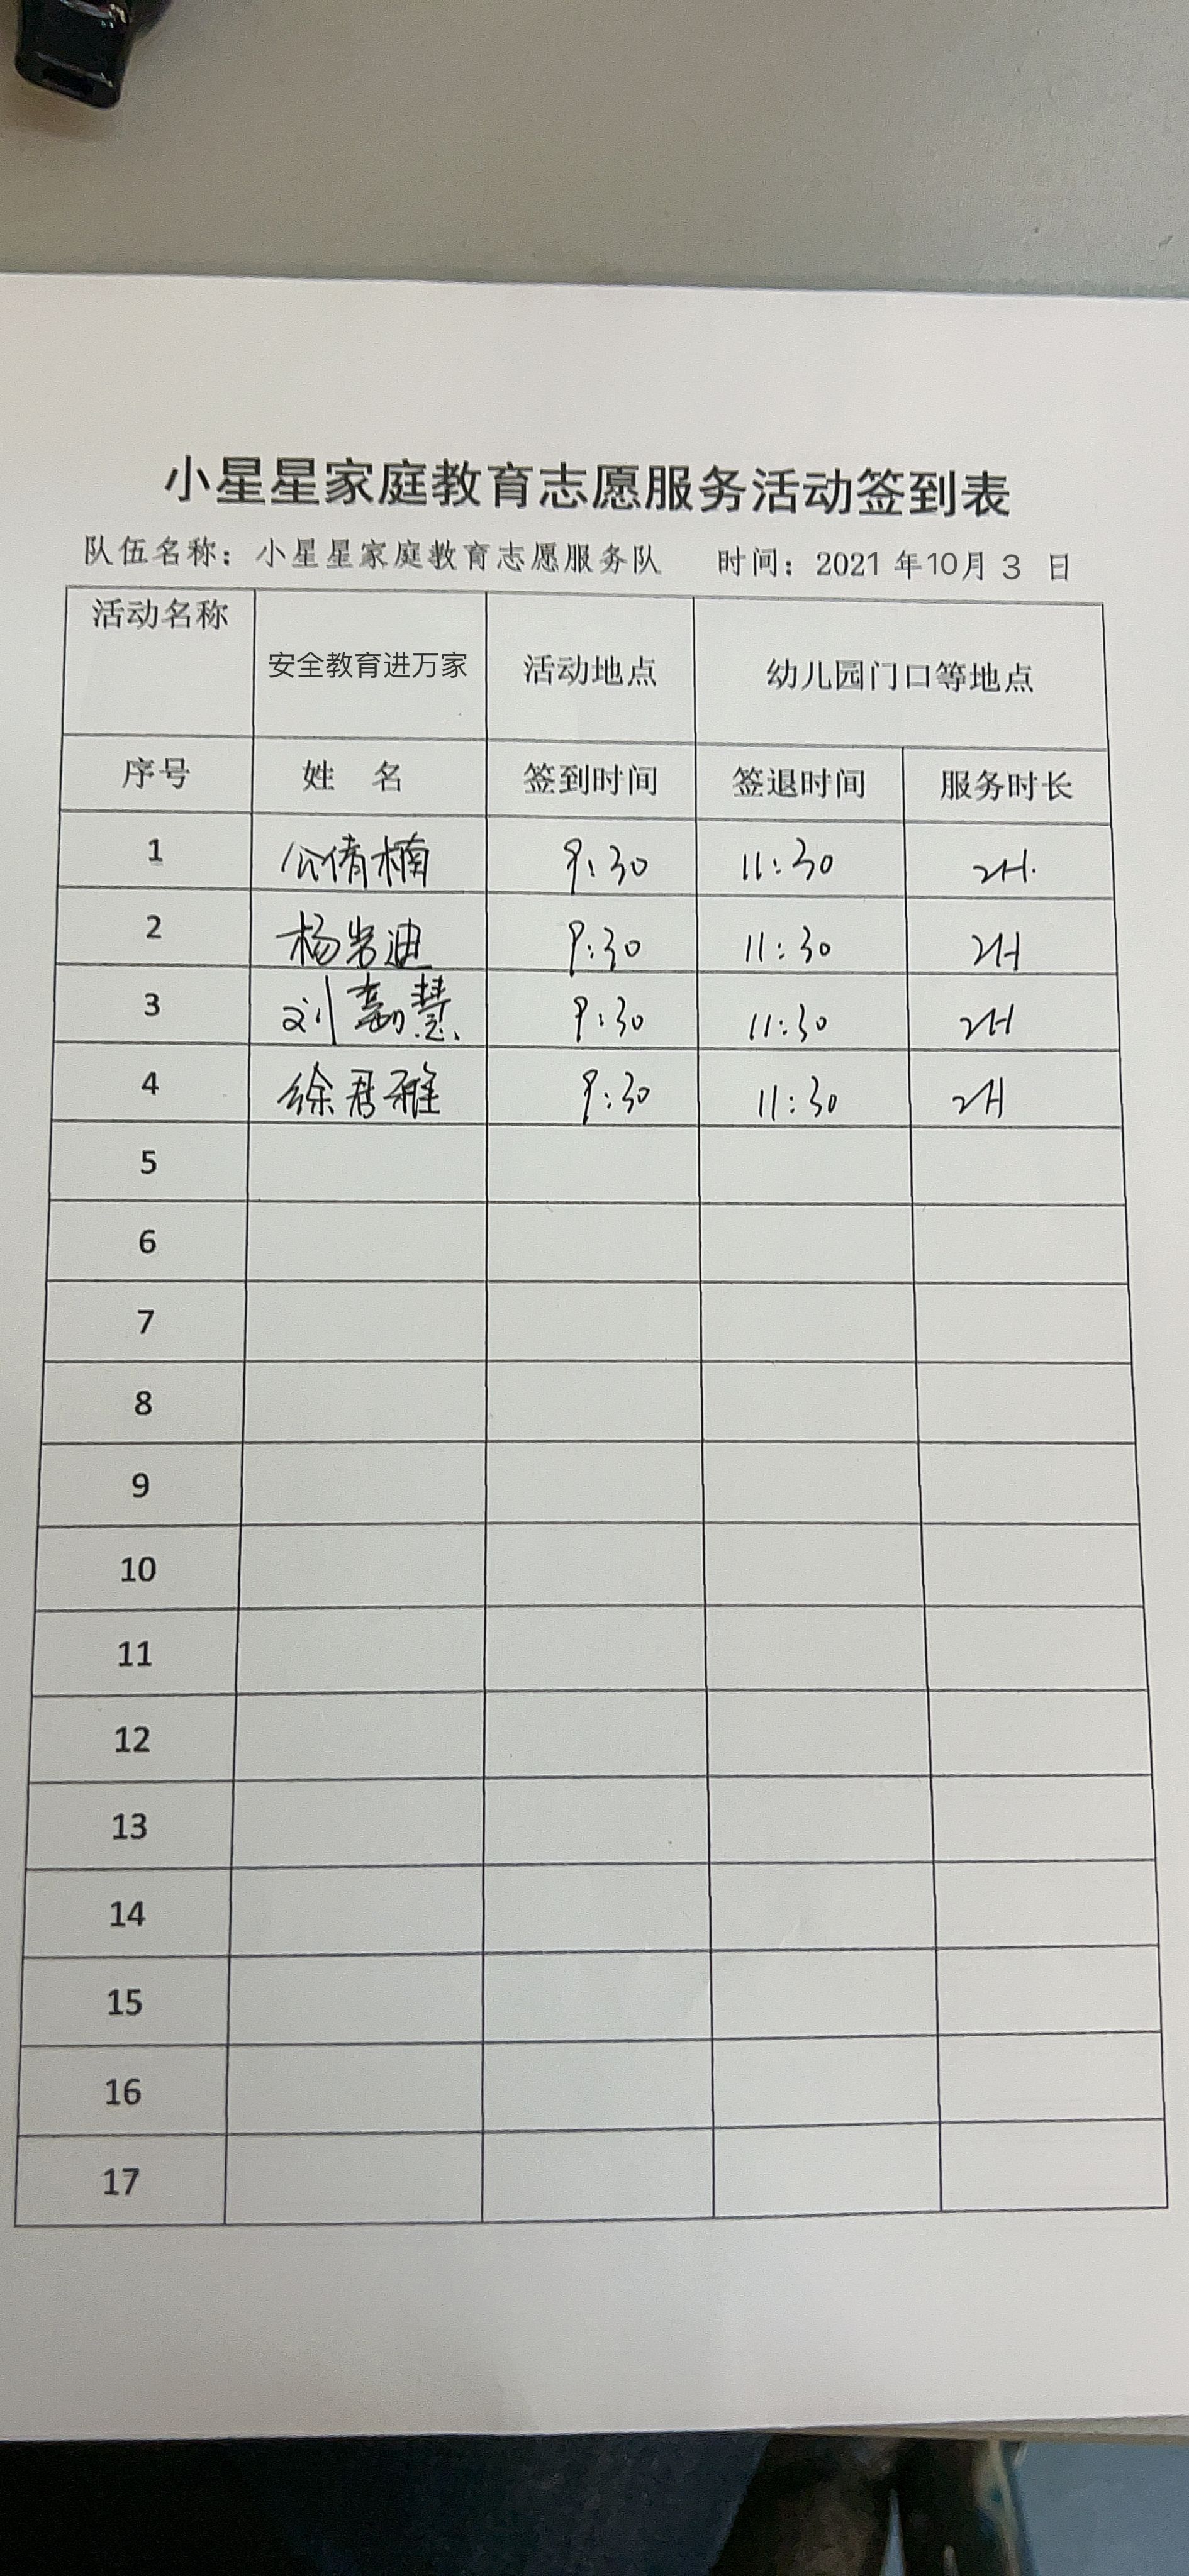 小星星家庭教育志愿服务活动签到表
队伍名称：小星星家庭教育志愿服务队 时间：2021年10月3日
活动名称 安全教育进万家 活动地点 幼儿园门口等地点
序号 姓 名 签到时间 签退时间 服务时长
1 公倩楠 9:30 11:30 2H.
2 杨 迪 9:30 11:30 2H
3 刘 慧 9:30 11:30 2H
4 徐君雅 9:30 11:30 2H
5
6
7
8
9
10
11
12
13
14
15
16
17